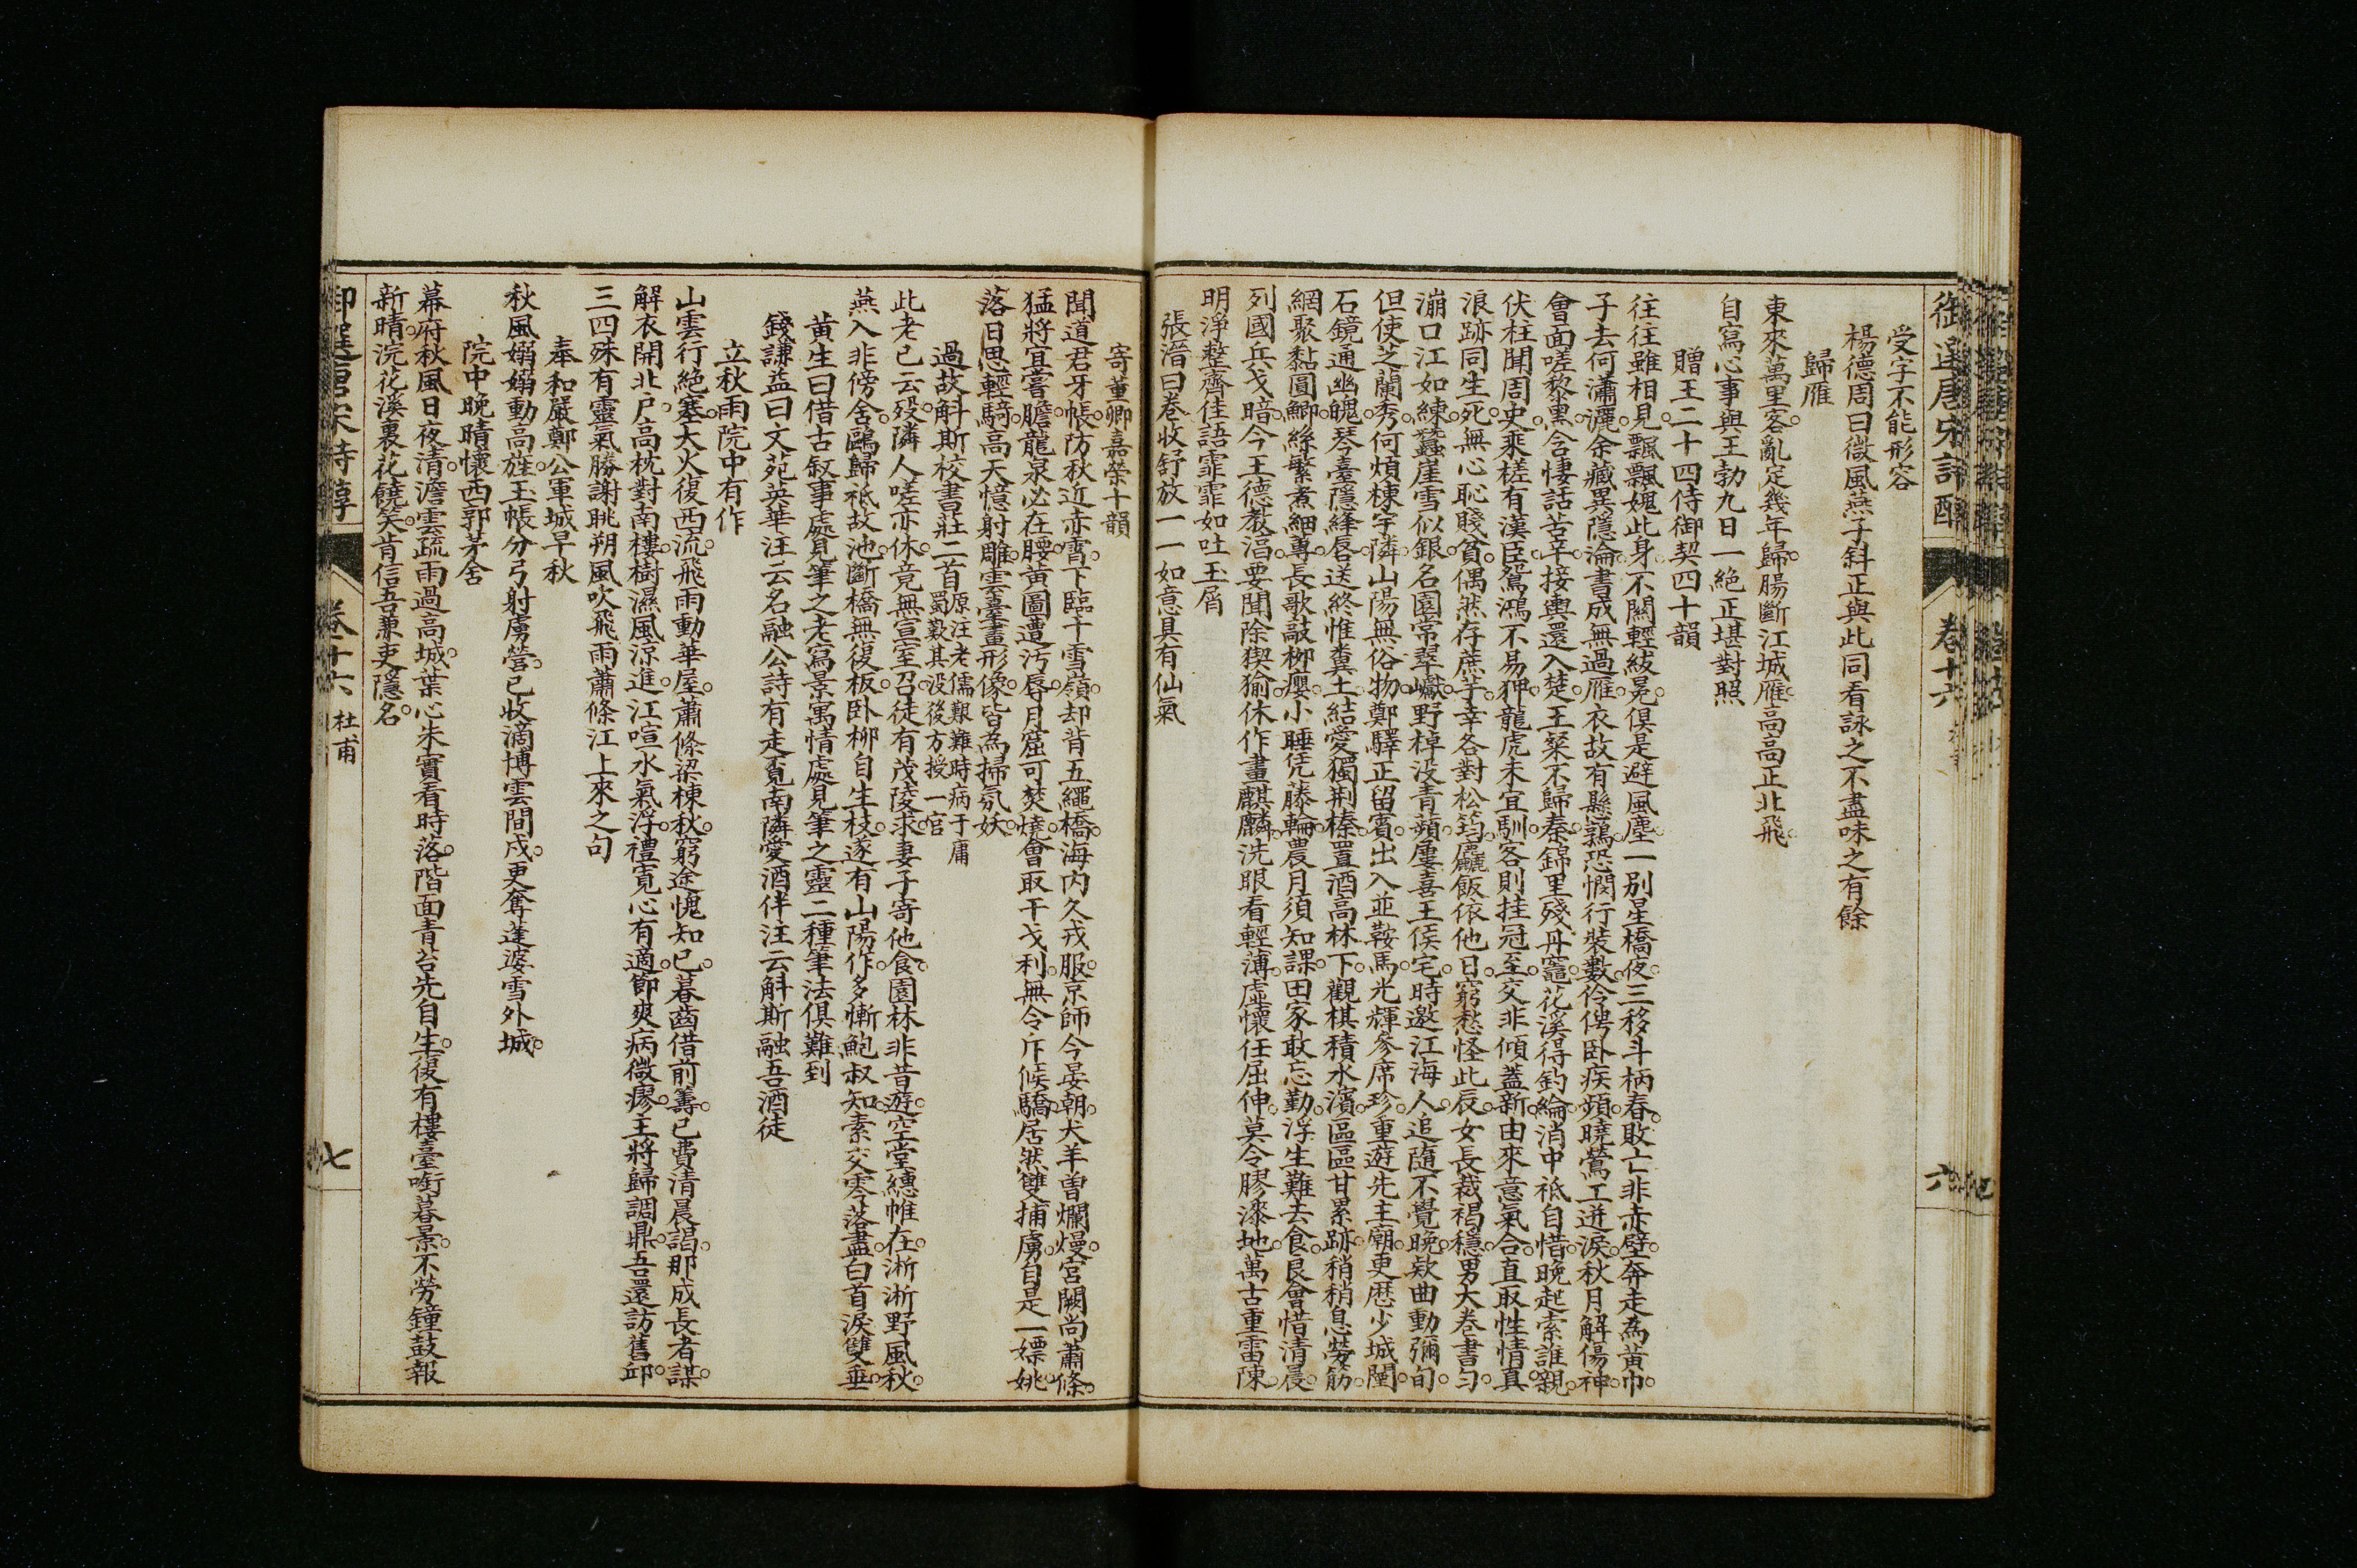 御選唐宋詩醇
卷十六
六
受字不能形容
楊德周曰微風燕子斜正與此同看詠之不盡味之有餘
歸雁
東來萬里客亂定幾年歸腸斷江城雁高高正北飛
自寫心事與王勃九日一絕正堪對照
贈王二十四侍御契四十韻
往往雖相見飄飄媿此身不關輕紱冕俱是避風塵一別星橋夜三移斗柄春敗亡非赤壁奔走為黃巾
子去何瀟灑余藏異隱淪書成無過雁衣故有懸鶉恐懼行裝數伶俜卧疾頻曉鶯工迸淚秋月解傷神
會面嗟黎黑含悽話苦辛接輿還入楚王粲不歸秦錦里殘丹竈花溪得釣綸消中祗自惜晚起索誰親
伏柱聞周史乘槎有漢臣鴛鴻不易狎龍虎未宜馴客則挂冠至交非傾蓋新由來意氣合直取性情真
浪跡同生死無心恥賤貧偶然存蔗芋幸各對松筠麤飯依他日窮愁怪此辰女長裁褐穩男大卷書勻
漰口江如練蠶崖雪似銀名園當翠巘野棹没青蘋屢喜王侯宅時邀江海人追隨不覺晚欵曲動彌旬
但使芝蘭秀何煩棟宇隣山陽無俗物鄭驛正留賓出入並鞍馬光輝參席珍重遊先主廟更歷少城闉
石鏡通幽魄琴臺隱絳唇送終惟糞土結愛獨荆榛置酒高林下觀棋積水濱區區甘累跡稍稍息勞筋
網聚黏圓鯽絲繁煮細蓴長歌敲柳癭小睡凭藤輪農月須知課田家敢忘勤浮生難去食良會惜清晨
列國兵戈暗今王德教滔要聞除猰㺄休作畫麒麟洗眼看輕薄虛懷任屈伸莫令膠漆地萬古重雷陳
明淨整齊佳語霏霏如吐玉屑
張溍曰卷收舒放一一如意具有仙氣
寄董卿嘉榮十韻
聞道君牙帳防秋近赤霄下臨千雪嶺却背五繩橋海内久戎服京師今晏朝犬羊曾爛熳宮闕尚蕭條
猛將宜嘗膽龍泉必在腰黃圖遭污辱月窟可焚燒會取干戈利無令斥候驕居然雙捕虜自是一嫖姚
落日思輕騎高天憶射雕雲臺畫形像皆為掃氛妖
過故斛斯校書莊二首原注老儒艱難時病于庸蜀歎其没後方授一官
此老已云殁隣人嗟亦休竟無宣室召徒有茂陵求妻子寄他食園林非昔遊空堂繐帷在淅淅野風秋
燕入非傍舍鷗歸祗故池斷橋無復板卧柳自生枝遂有山陽作多慚鮑叔知素交零落盡白首淚雙垂
黄生曰借古叙事處見筆之老寫景寓情處見筆之靈二種筆法俱難到
錢謙益曰文苑英華注云名融公詩有走覓南隣愛酒伴注云斛斯融吾酒徒
立秋雨院中有作
山雲行絕塞大火復西流飛雨動華屋蕭條梁棟秋窮途愧知己暮齒借前籌已費清晨謁那成長者謀
解衣開北户高枕對南樓樹濕風涼進江喧水氣浮禮寛心有適節爽病微瘳主將歸調鼎吾還訪舊邱
三四殊有靈氣勝謝眺朔風吹飛雨蕭條江上來之句
奉和嚴鄭公軍城早秋
秋風嫋嫋動高旌玉帳分弓射虜營已收滴博雲間戍更奪蓬婆雪外城
院中晚晴懷西郭茅舍
幕府秋風日夜清澹雲疏雨過高城葉心朱實看時落階面青苔先自生復有樓臺銜暮景不勞鐘鼓報
新晴浣花溪裏花饒笑肯信吾兼吏隱名
御選唐宋詩醇
卷十六
杜甫
七